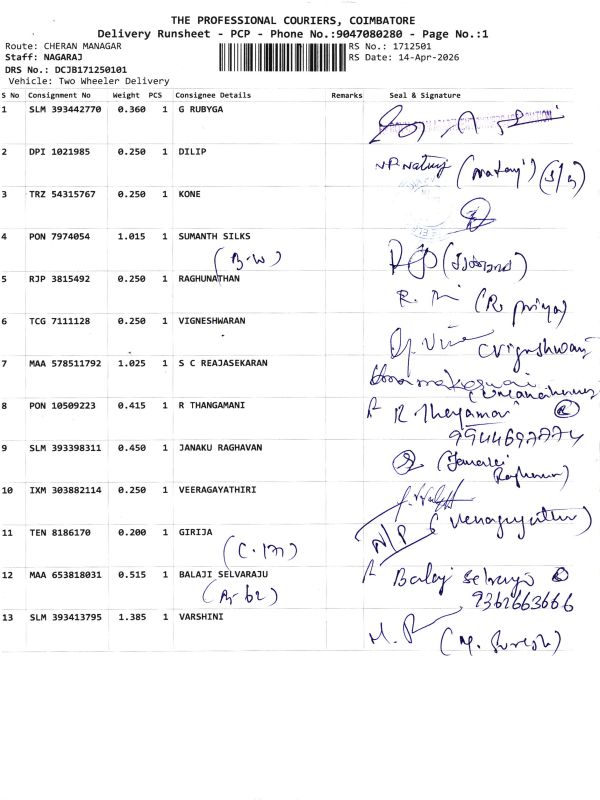 THE PROFESSIONAL COURIERS, COIMBATORE
Delivery Runsheet - PCP - Phone No.:9047080280 - Page No.:1
Route: CHERAN MANAGAR RS No.: 1712501
Staff: NAGARAJ RS Date: 14-Apr-2026
DRS No.: DCJB171250101
Vehicle: Two Wheeler Delivery
S No Consignment No Weight PCS Consignee Details Remarks Seal & Signature
1 SLM 393442770 0.360 1 G RUBYGA
2 DPI 1021985 0.250 1 DILIP
3 TRZ 54315767 0.250 1 KONE
4 PON 7974054 1.015 1 SUMANTH SILKS
(B-W)
5 RJP 3815492 0.250 1 RAGHUNATHAN
R. (R. priya)
6 TCG 7111128 0.250 1 VIGNESHWARAN
7 MAA 578511792 1.025 1 S C REAJASEKARAN
8 PON 10509223 0.415 1 R THANGAMANI
9 SLM 393398311 0.450 1 JANAKU RAGHAVAN
10 IXM 303882114 0.250 1 VEERAGAYATHIRI
11 TEN 8186170 0.200 1 GIRIJA N/P
12 MAA 653818031 0.515 1 BALAJI SELVARAJU Balaji
9362663666
13 SLM 393413795 1.385 1 VARSHINI
(M. Suresh)